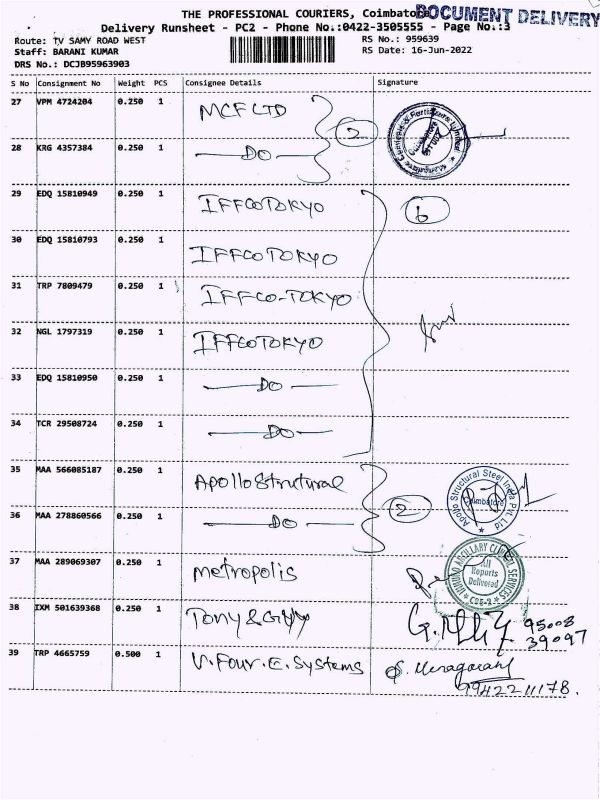 THE PROFESSIONAL COURIERS, Coimbatore
DOCUMENT DELIVERY
Delivery Runsheet - PC2 - Phone No.:0422-3505555 - Page No.:3
Route: TV SAMY ROAD WEST
RS No.: 959639
Staff: BARANI KUMAR
RS Date: 16-Jun-2022
DRS No.: DCJB95963903
S No Consignment No Weight PCS Consignee Details Signature
27 VPM 4724204 0.250 1 MCF LTD
2
28 KRG 4357384 0.250 1 DO
29 EDQ 15810949 0.250 1 IFFCO TOKYO 6
30 EDQ 15810793 0.250 1 IFFCO TOKYO
31 TRP 7809479 0.250 1 IFFCO-TOKYO
32 NGL 1797319 0.250 1 IFFCO TOKYO
33 EDQ 15810950 0.250 1 DO
34 TCR 29508724 0.250 1 DO
35 MAA 566085187 0.250 1 Apollo Strutural
Apollo Structural Steel India Pvt. Ltd
Coimbatore
2
36 MAA 278860566 0.250 1 DO
37 MAA 289069307 0.250 1 metropolis
ANCILLARY CLINICAL SERVICES
All
Reports
Delivered
38 IXM 501639368 0.250 1 Tony & Guy
95008
39097
39 TRP 4665759 0.500 1 V. Four. E. Systems
9942211178.